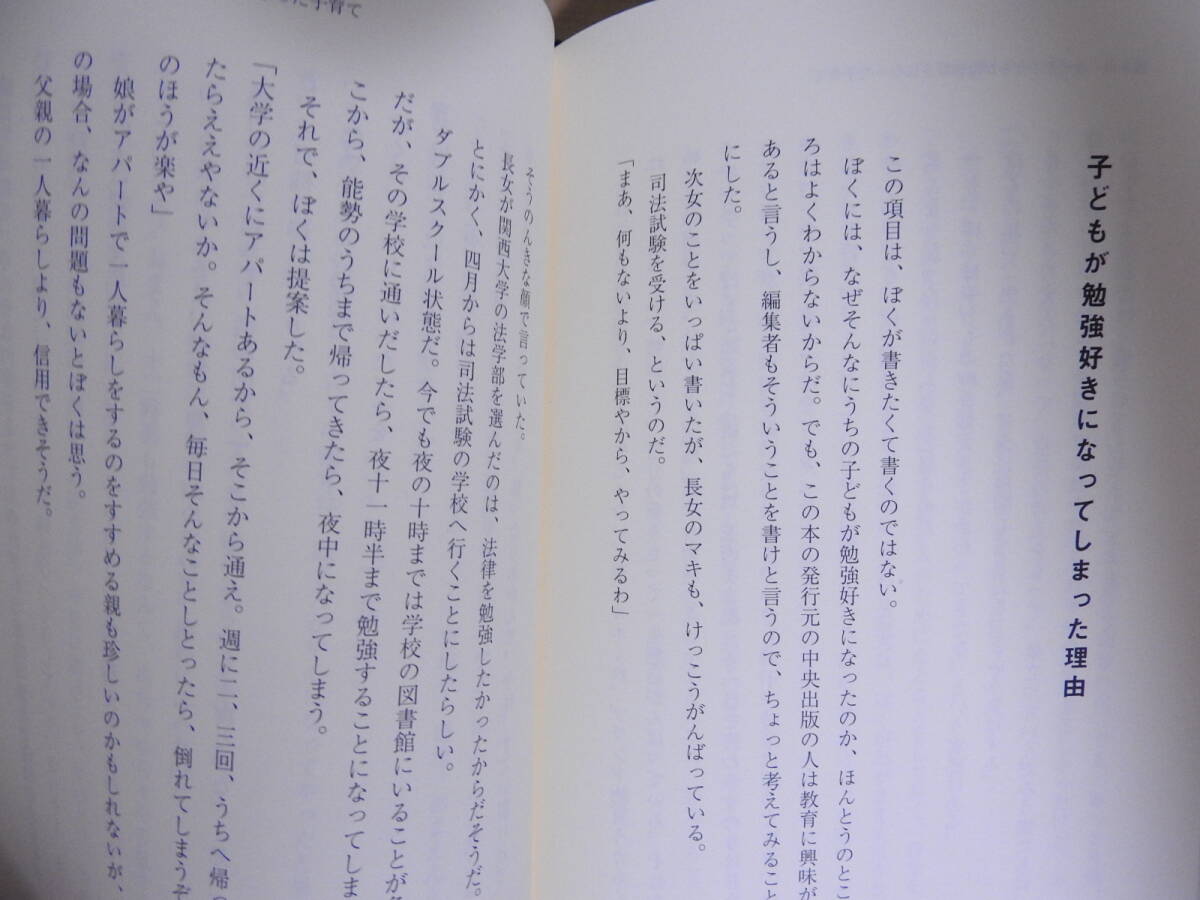 子どもが勉強好きになってしまった理由
この項目は、ぼくが書きたくて書くのではない。
ぼくには、なぜそんなにうちの子どもが勉強好きになったのか、ほんとうのとこ
ろはよくわからないからだ。でも、この本の発行元の中央出版の人は教育に興味が
あると言うし、編集者もそういうことを書けと言うので、ちょっと考えてみること
にした。
次女のことをいっぱい書いたが、長女のマキも、けっこうがんばっている。
司法試験を受ける、というのだ。
「まあ、何もないより、目標やから、やってみるわ」
た子育て
そうのんきな顔で言っていた。
長女が関西大学の法学部を選んだのは、法律を勉強したかったからだそうだ。
とにかく、四月からは司法試験の学校へ行くことにしたらしい。
ダブルスクール状態だ。今でも夜の十時までは学校の図書館にいることが
だが、その学校に通いだしたら、夜十一時半まで勉強することになってしま
こから、能勢のうちまで帰ってきたら、夜中になってしまう。
それで、ぼくは提案した。
「大学の近くにアパートあるから、そこから通え。週に二、三回、うちへ帰
たらええやないか。そんなもん、毎日そんなことしとったら、倒れてしまうぞ
のほうが楽や」
娘がアパートで一人暮らしをするのをすすめる親も珍しいのかもしれないが、
の場合、なんの問題もないとぼくは思う。
父親の一人暮らしより、信用できそうだ。